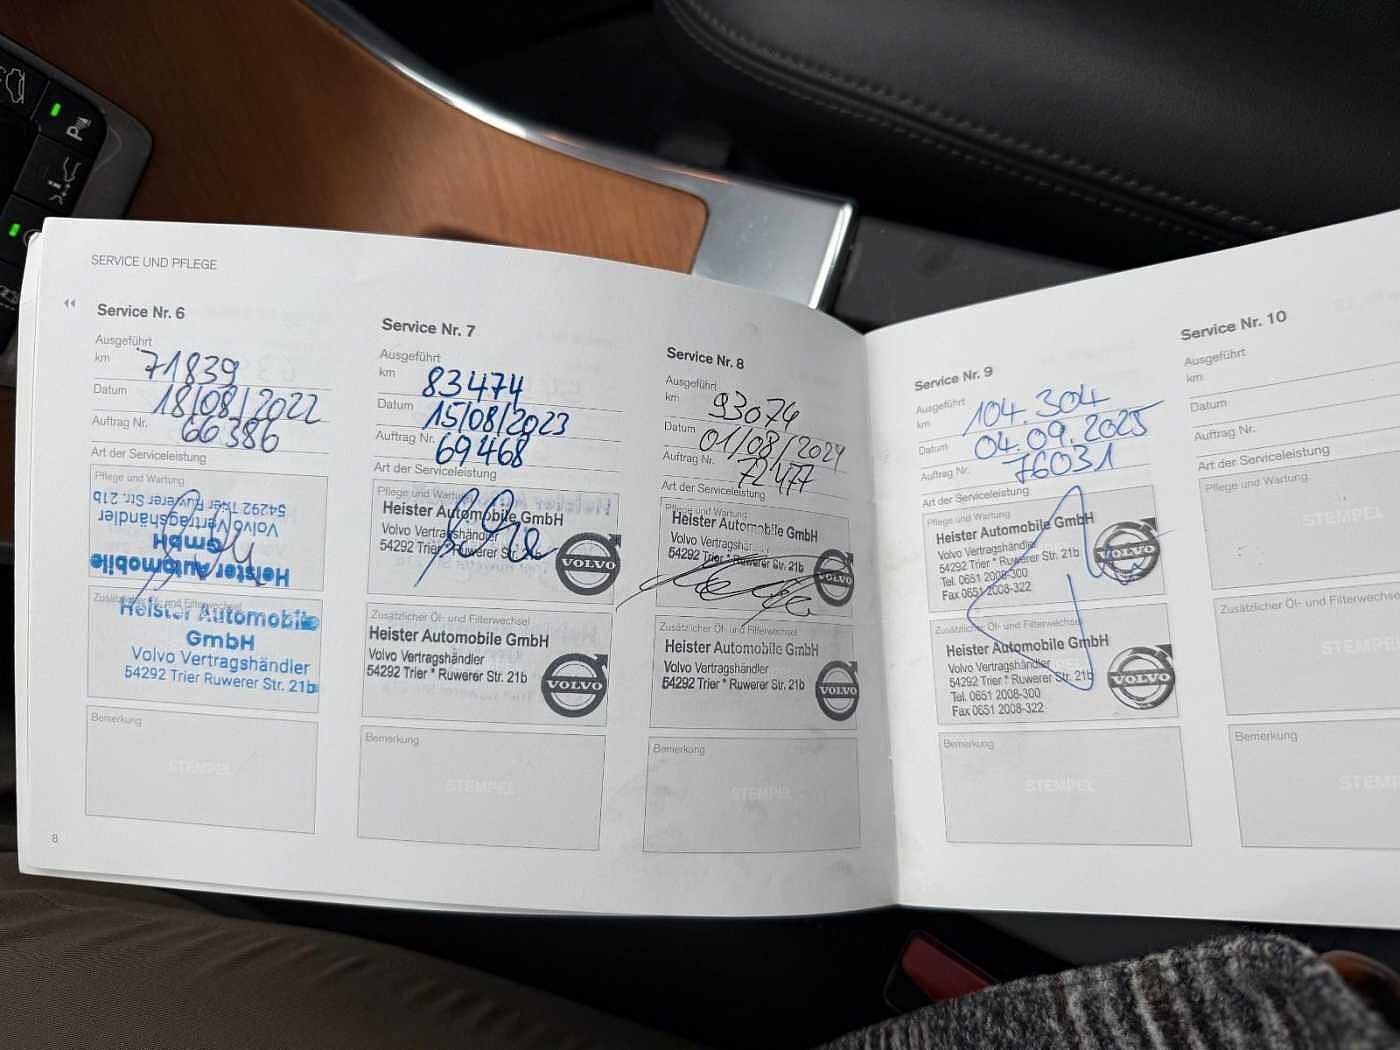 SERVICE UND PFLEGE
Service Nr. 6
Ausgeführt
km 71839
Datum 18/08/2022
Auftrag Nr. 66386
Art der Serviceleistung
Pflege und Wartung
Heister Automobile
GmbH
Volvo Vertragshändler
54292 Trier Ruwerer Str. 21b
Zusätzlicher Öl- und Filterwechsel
Heister Automobile
GmbH
Volvo Vertragshändler
54292 Trier Ruwerer Str. 21b
Bemerkung
STEMPEL
8
Service Nr. 7
Ausgeführt
km 83474
Datum 15/08/2023
Auftrag Nr. 69468
Art der Serviceleistung
Pflege und Wartung
Heister Automobile GmbH
Volvo Vertragshändler
54292 Trier * Ruwerer Str. 21b
VOLVO
Zusätzlicher Öl- und Filterwechsel
Heister Automobile GmbH
Volvo Vertragshändler
54292 Trier * Ruwerer Str. 21b
VOLVO
Bemerkung
STEMPEL
Service Nr. 8
Ausgeführt
km 93074
Datum 01/08/2024
Auftrag Nr. 72477
Art der Serviceleistung
Pflege und Wartung
Heister Automobile GmbH
Volvo Vertragshändler
54292 Trier * Ruwerer Str. 21b
VOLVO
Zusätzlicher Öl- und Filterwechsel
Heister Automobile GmbH
Volvo Vertragshändler
54292 Trier * Ruwerer Str. 21b
VOLVO
Bemerkung
STEMPEL
Service Nr. 9
Ausgeführt
km 104.304
Datum 04.09.2025
Auftrag Nr. 76031
Art der Serviceleistung
Pflege und Wartung
Heister Automobile GmbH
Volvo Vertragshändler
54292 Trier * Ruwerer Str. 21b
Tel. 0651 2008-300
Fax 0651 2008-322
VOLVO
Zusätzlicher Öl- und Filterwechsel
Heister Automobile GmbH
Volvo Vertragshändler
54292 Trier * Ruwerer Str. 21b
Tel. 0651 2008-300
Fax 0651 2008-322
VOLVO
Bemerkung
STEMPEL
Service Nr. 10
Ausgeführt
km
Datum
Auftrag Nr.
Art der Serviceleistung
Pflege und Wartung
STEMPEL
Zusätzlicher Öl- und Filterwechse
STEMPE
Bemerkung
STEMP